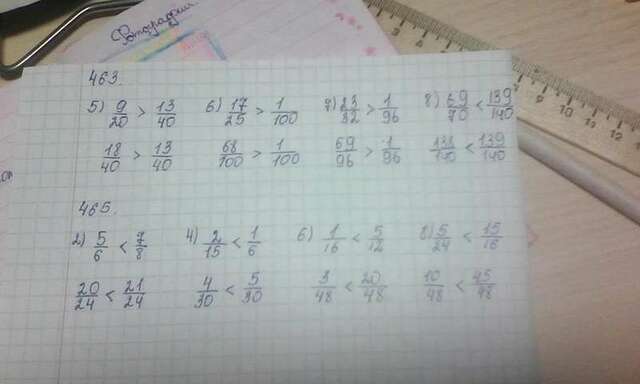 Фотографии
463.
5) 9/20 > 13/40 6) 17/25 > 1/100 7) 23/32 > 1/96 8) 69/70 < 139/140
18/40 > 13/40 68/100 > 1/100 69/96 > 1/96 138/140 < 139/140
465.
2) 5/6 < 7/8 4) 2/15 < 1/6 6) 1/16 < 5/12 8) 5/24 < 15/16
20/24 < 21/24 4/30 < 5/30 3/48 < 20/48 10/48 < 45/48